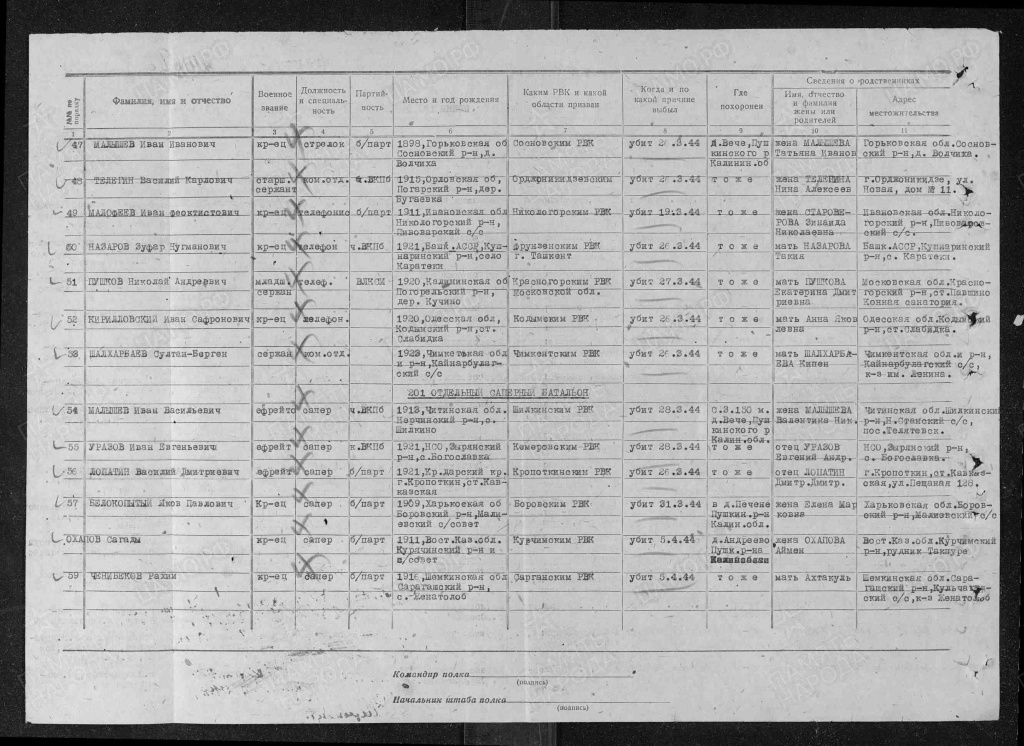 Сведения о родственниках
№№ по порядку | Фамилия, имя и отчество | Военное звание | Должность и специальность | Партийность | Место и год рождения | Каким РВК и какой области призван | Когда и по какой причине выбыл | Где похоронен | Имя, отчество и фамилия жены или родителей | Адрес местожительства
1 2 3 4 5 6 7 8 9 10 11
47 МАЛЫШЕВ Иван Иванович кр-ец стрелок б/парт 1898,Горьковская об Сосновским РВК убит 3.44 д.Вече,Пуш жена МАЛЫШЕВА Горьковская обл.Соснов-
Сосновский р-н,д. кинского р Татьяна Иванов ский р-н,д. Волчиха.
Волчиха Калинин.об
48 ТЕЛЕГИН Василий Карлович старш. ком.отд. ВКПб 1915,Орловская об, Орджоникидзевским убит 3.44 т о ж е жена ТЕЛЕГИНА г.Орджоникидзе, ул.
сержант Погарский р-н,дер. Нина Алексеев Новая, дом № 11.
Нугаевка
49 МАЛОФЕЕВ Иван феоктистович кр-ец телефонис б/парт 1911,Ивановская обл Никологорским РВК убит 19.3.44 т о ж е жена СТАРОВЕ- Ивановская обл.Николо-
Никологорский р-н, РОВА Зинаида горский р-н,Пивоваров-
Пивоварский с/с Николаевна ский с/с.
50 НАЗАРОВ Зуфар Нугманович кр-ец телефон ч.ВКПб 1921,Башк.АССР,Куш- Фрунзенским РВК убит 26.3.44 т о ж е мать НАЗАРОВА Башк.АССР,Кушнаринский
наринский р-н,село г. Ташкент Такия р-н,с. Каратеки.
Каратеки
51 ПУШКОВ Николай Андреевич младш. телеф. ВЛКСМ 1920,Калининская об Красногорским РВК убит 27.3.44 т о ж е мать ПУШКОВА Московская обл.Красно-
сержан Погорельский р-н, Московской обл. Екатерина Дмит горский р-н,ст.Павшино
дер. Кучино риевна Конная санатория.
52 КИРИЛЛОВСКИЙ Иван Сафронович кр-ец телефон. 1920,Одесская обл, Кодымским РВК убит 26.3.44 т о ж е мать Анна Яков Одесская обл.Кодымский
Кодымский р-н,ст. левна р-н,ст.Слабидка.
Слабидка
53 ШАЛХАРБАЕВ Султан-Берген сержан ком.отд. 1923,Чимкетская обл Чимкентским РВК убит 26.3.44 т о ж е мать ШАЛХАРБА- Чимкентская обл.и р-н,
и р-н,Кайнарбулаг- ЕВА Кипен Кайнарбулагский с/с,
ский с/с к-з им. Ленина.
201 ОТДЕЛЬНЫЙ САПЕРНЫЙ БАТАЛЬОН
54 МАЛЫШЕВ Иван Васильевич ефрейто сапер ч.ВКПб 1913,Читинская обл. Шилкинским РВК убит 28.3.44 С.З.150 м. жена МАЛЫШЕВА Читинская обл.Шилкинский
Нерчинский р-н,с. д.Вече,Пуш Валентина Ник. р-н,Н.Станский с/с,
Шилкино кинского р пос.Телятевск.
Калин.обл.
55 УРАЗОВ Иван Евгеньевич ефрейт сапер к.ВКПб 1921,НСО,Зырянский Кемеровским РВК убит 28.3.44 т о ж е отец УРАЗОВ НСО,Зырянский р-н,
р-н,с.Богославка Евгений Андр. с. Богославка.
56 ЛОПАТИН Василий Дмитриевич ефрейт сапер б/парт 1921,Кр.Дарский кр. Кропоткинским РВК убит 26.3.44 т о ж е отец ЛОПАТИН г.Кропоткин,ст.Кавказ-
г.Кропоткин,ст.Кав- Дмитр.Дмитр. ская,ул.Пещаная 128.
казская
57 БЕЛОКОПЫТЫЙ Яков Павлович Кр-ец сапер б/парт 1909,Харькоеская об Боровским РВК убит 31.3.44 в д.Печене жена Елена Мар Харьковская обл.Боров-
Боровский р-н,Мали- Пушкин.р-н ковна ский р-н,Малиевский с/с
евский с/совет Калин.обл.
ОХАПОВ Сагады кр-ец сапер б/парт 1911,Вост.Каз.обл. Курчимским РВК убит 5.4.44 д.Андреево жена ОХАПОВА Вост.Каз.обл.Курчимский
Курячинский р-н и Пушк.р-на Аймен р-н,рудник Такпуре
п/совет
59 ЧЕНИБЕКОВ Рахим кр-ец сапер б/парт 1916,Шемкинская обл Сарганским РВК убит 5.4.44 т о ж е мать Ахтакуль Шемкинская обл.Сара-
Сарагашский р-н, гашский р-н,Кульчатин-
с. Женатолоб ский с/с,к-з Женатолоб
Командир полка
(подпись)
Начальник штаба полка
(подпись)